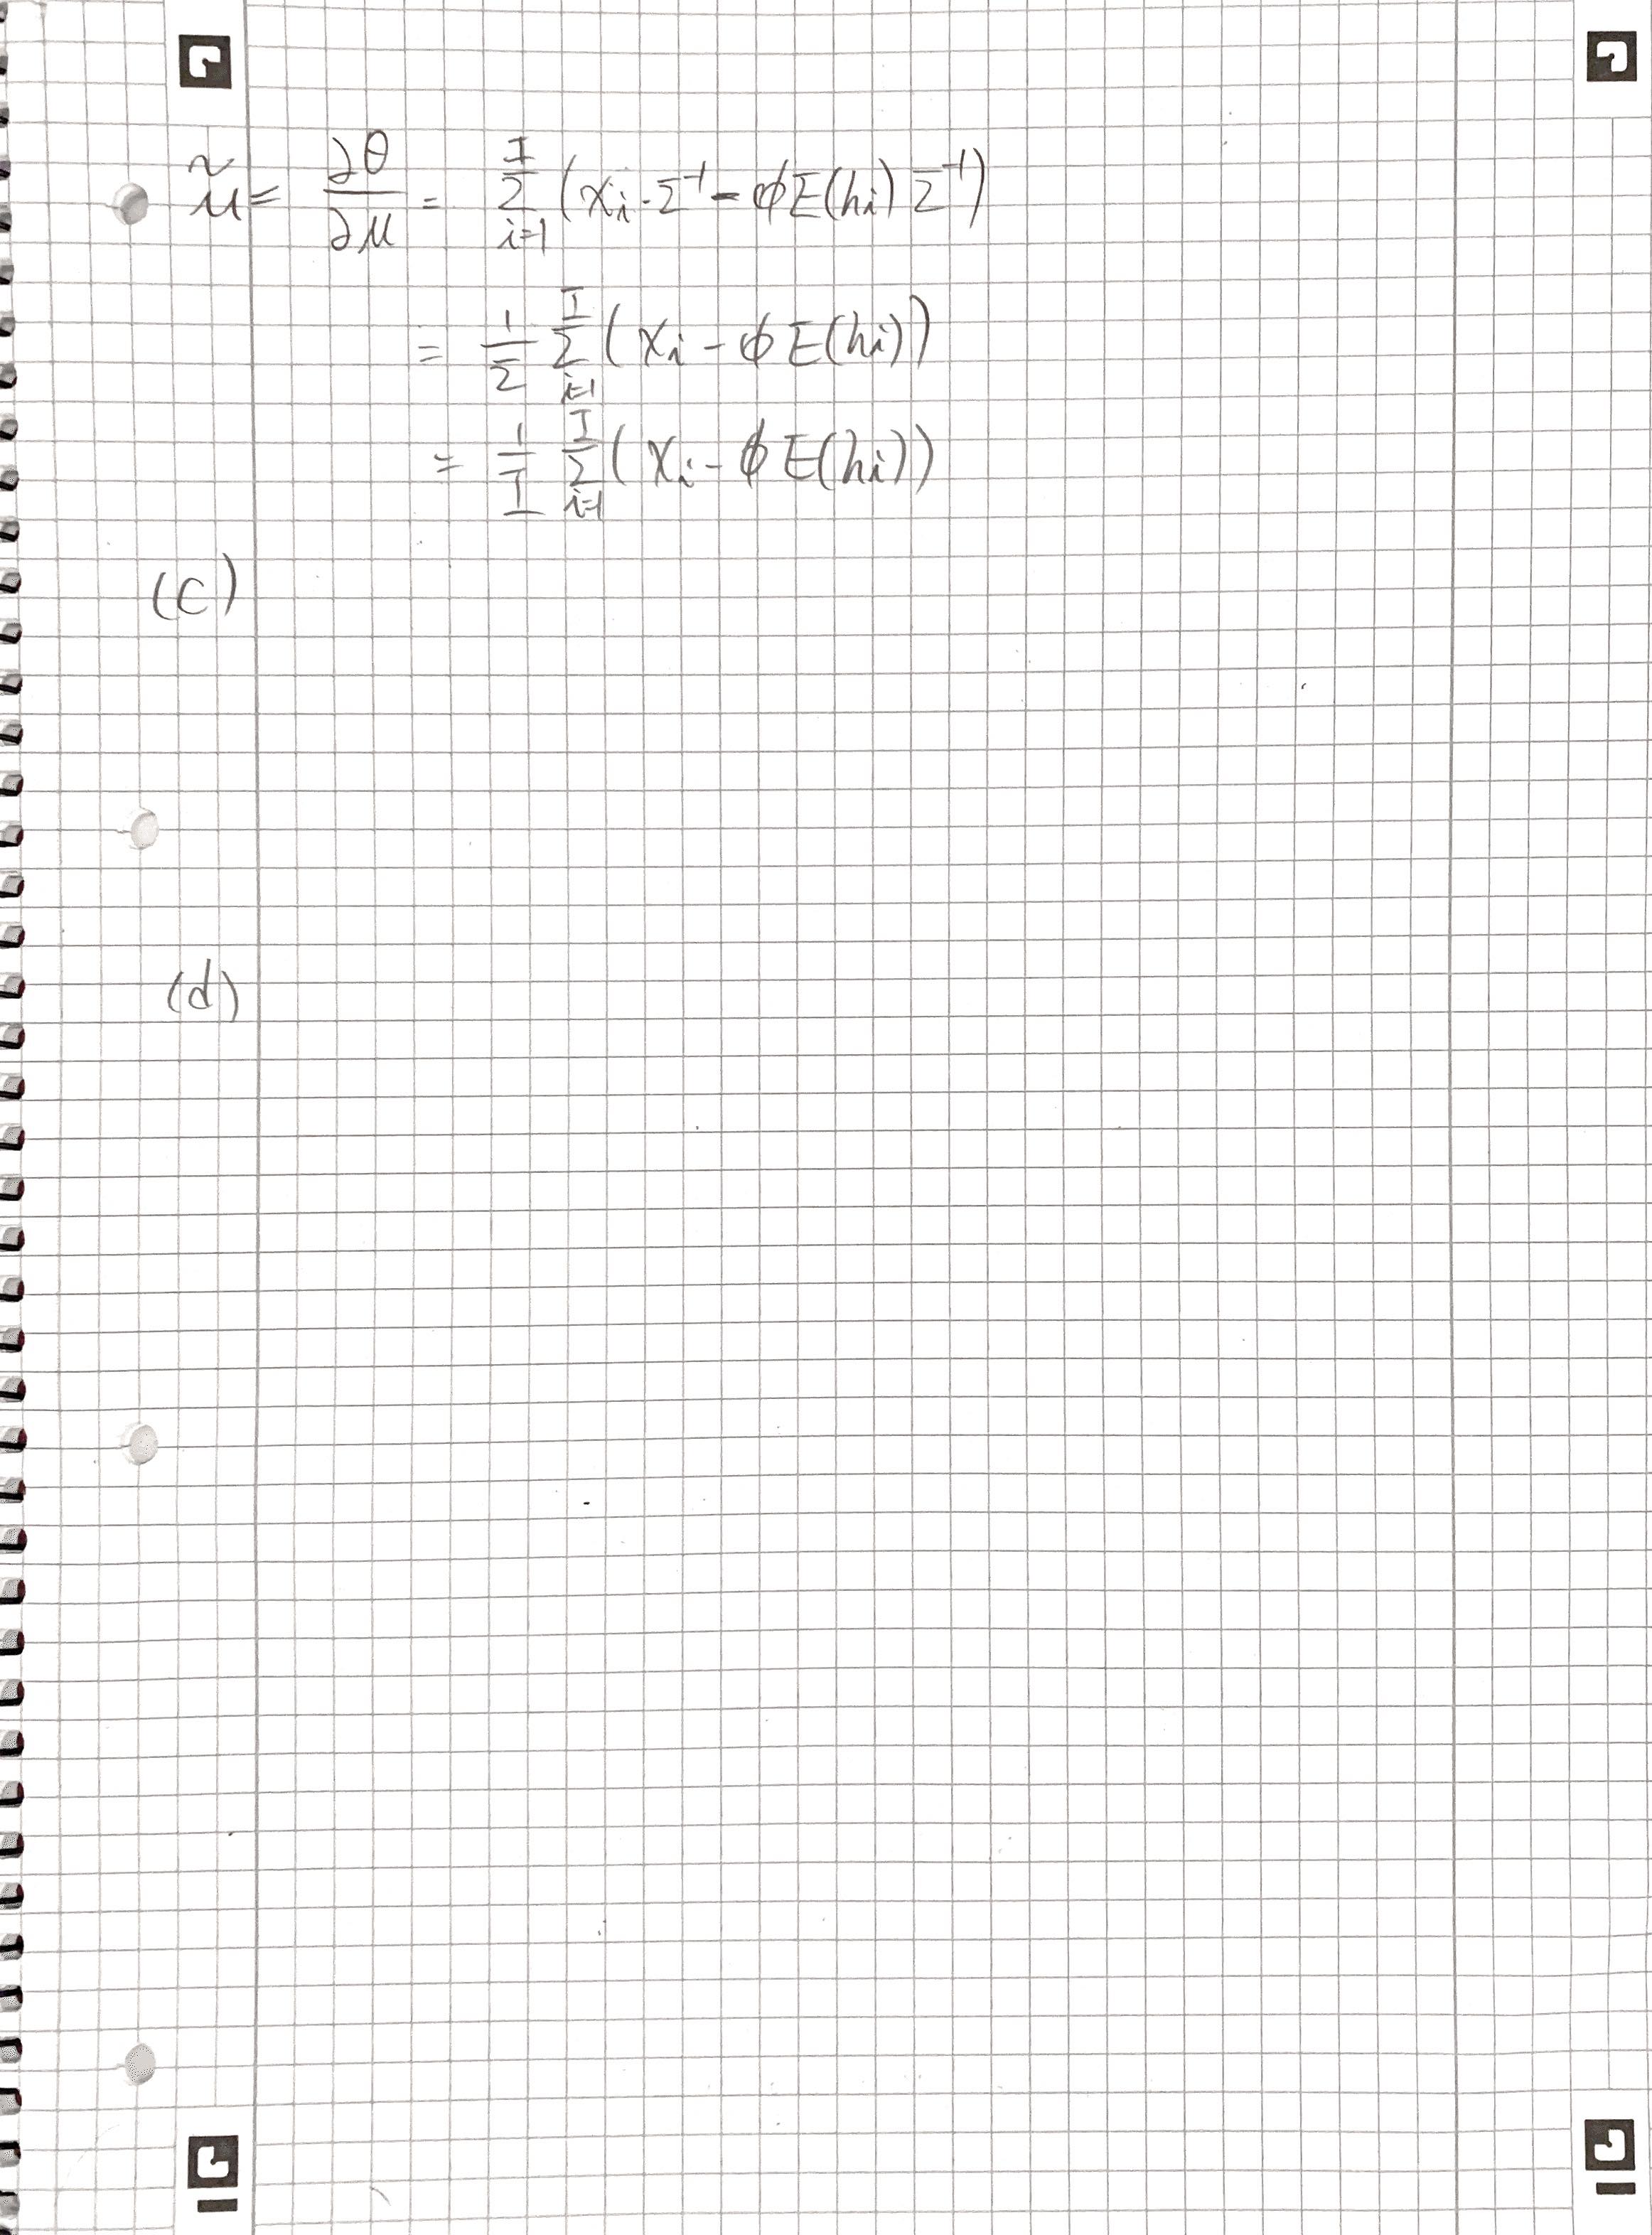 μ̃ = ∂θ/∂μ = Σ_{i=1}^{I} (x_i · Σ^{-1} - φE(h_i) Σ^{-1})
= 1/Σ Σ_{i=1}^{I} (x_i - φE(h_i))
= 1/I Σ_{i=1}^{I} (x_i - φE(h_i))
(c)
(d)